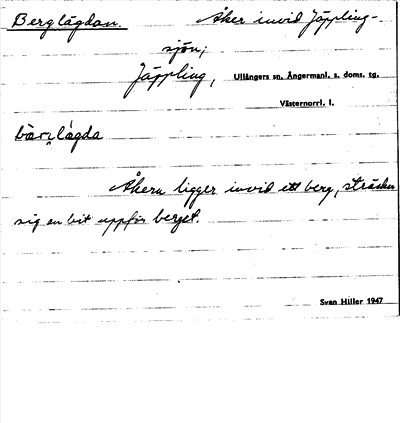 Berglägdan. Åker invid Jäppling-
sjön;
Jäppling, Ullångers sn, Ångermanl. s. doms. tg.
Västernorrl. l.
bær,lægda
Åkern ligger invid ett berg, sträcker
sig en bit uppför berget.
Sven Hiller 1947